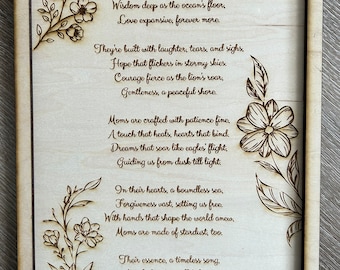 Wisdom deep as the ocean's floor,
Love expansive, forever more.
They're built with laughter, tears, and sighs,
Hope that flickers in stormy skies.
Courage fierce as the lion's roar,
Gentleness, a peaceful shore.
Moms are crafted with patience fine,
A touch that heals, hearts that bind.
Dreams that soar like eagles' flight,
Guiding us from dusk till light.
On their hearts, a boundless sea,
Forgiveness vast, setting us free.
With hands that shape the world anew,
Moms are made of stardust, too.
Their essence, a timeless song,